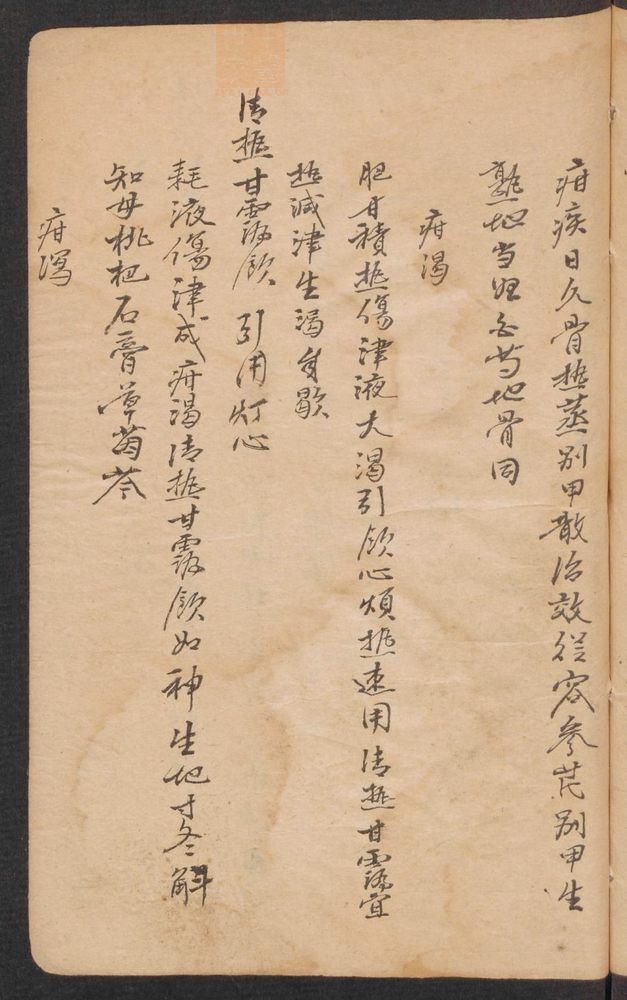 疳疾日久骨热蒸别甲散治效从容参芪别甲生
熟地当归白芍地骨同
疳渴
肥甘積热傷津液大渴引飲心煩热速用清热甘露宜
热減津生渴自歇
清热甘露飲 引用灯心
耗液傷津成疳渴清热甘露飲如神生地寸冬斛
知母枇杷石膏草茵芩
疳瀉